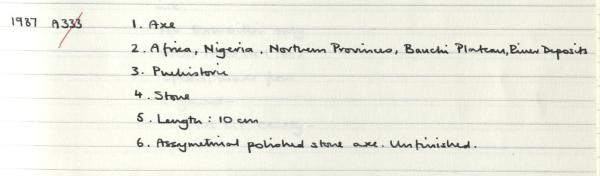 1987 A333 1. Axe
2. Africa, Nigeria, Northern Provinces, Bauchi Plateau, River Deposits
3. Prehistoric
4. Stone
5. Length: 10 cm
6. Assymetrical polished stone axe. Unfinished.